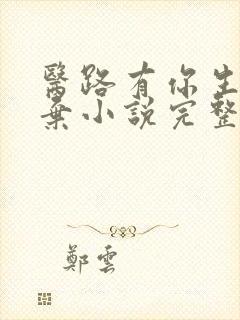 醫路有你生
棄小說完整
鄭雲